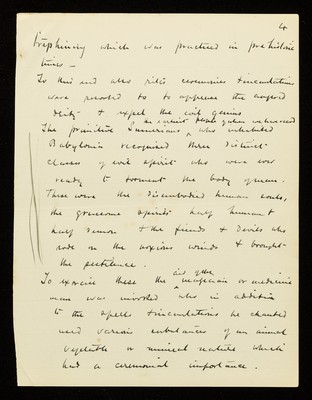 4
Trephining which was practised in prehistoric
times —
To this end also rites ceremonies & incantations
were resorted to to appease the angered
deity & expel the evil genius
an ancient people of whom we have record
The primitive Sumerians, who inhabited
Babylonia recognised three distinct
classes of evil spirit who were ever
ready to torment the body of man.
These were the disembodied human souls,
the gruesome spirits half human &
half demon & the fiends & devils who
rode on the noxious winds & brought
the pestilence.
aid of the
To exorcise these the magician or medicine
man was invoked who in addition
to the spells & incantations he chanted
used various substances of an animal
vegetable or mineral nature which
had a ceremonial importance.